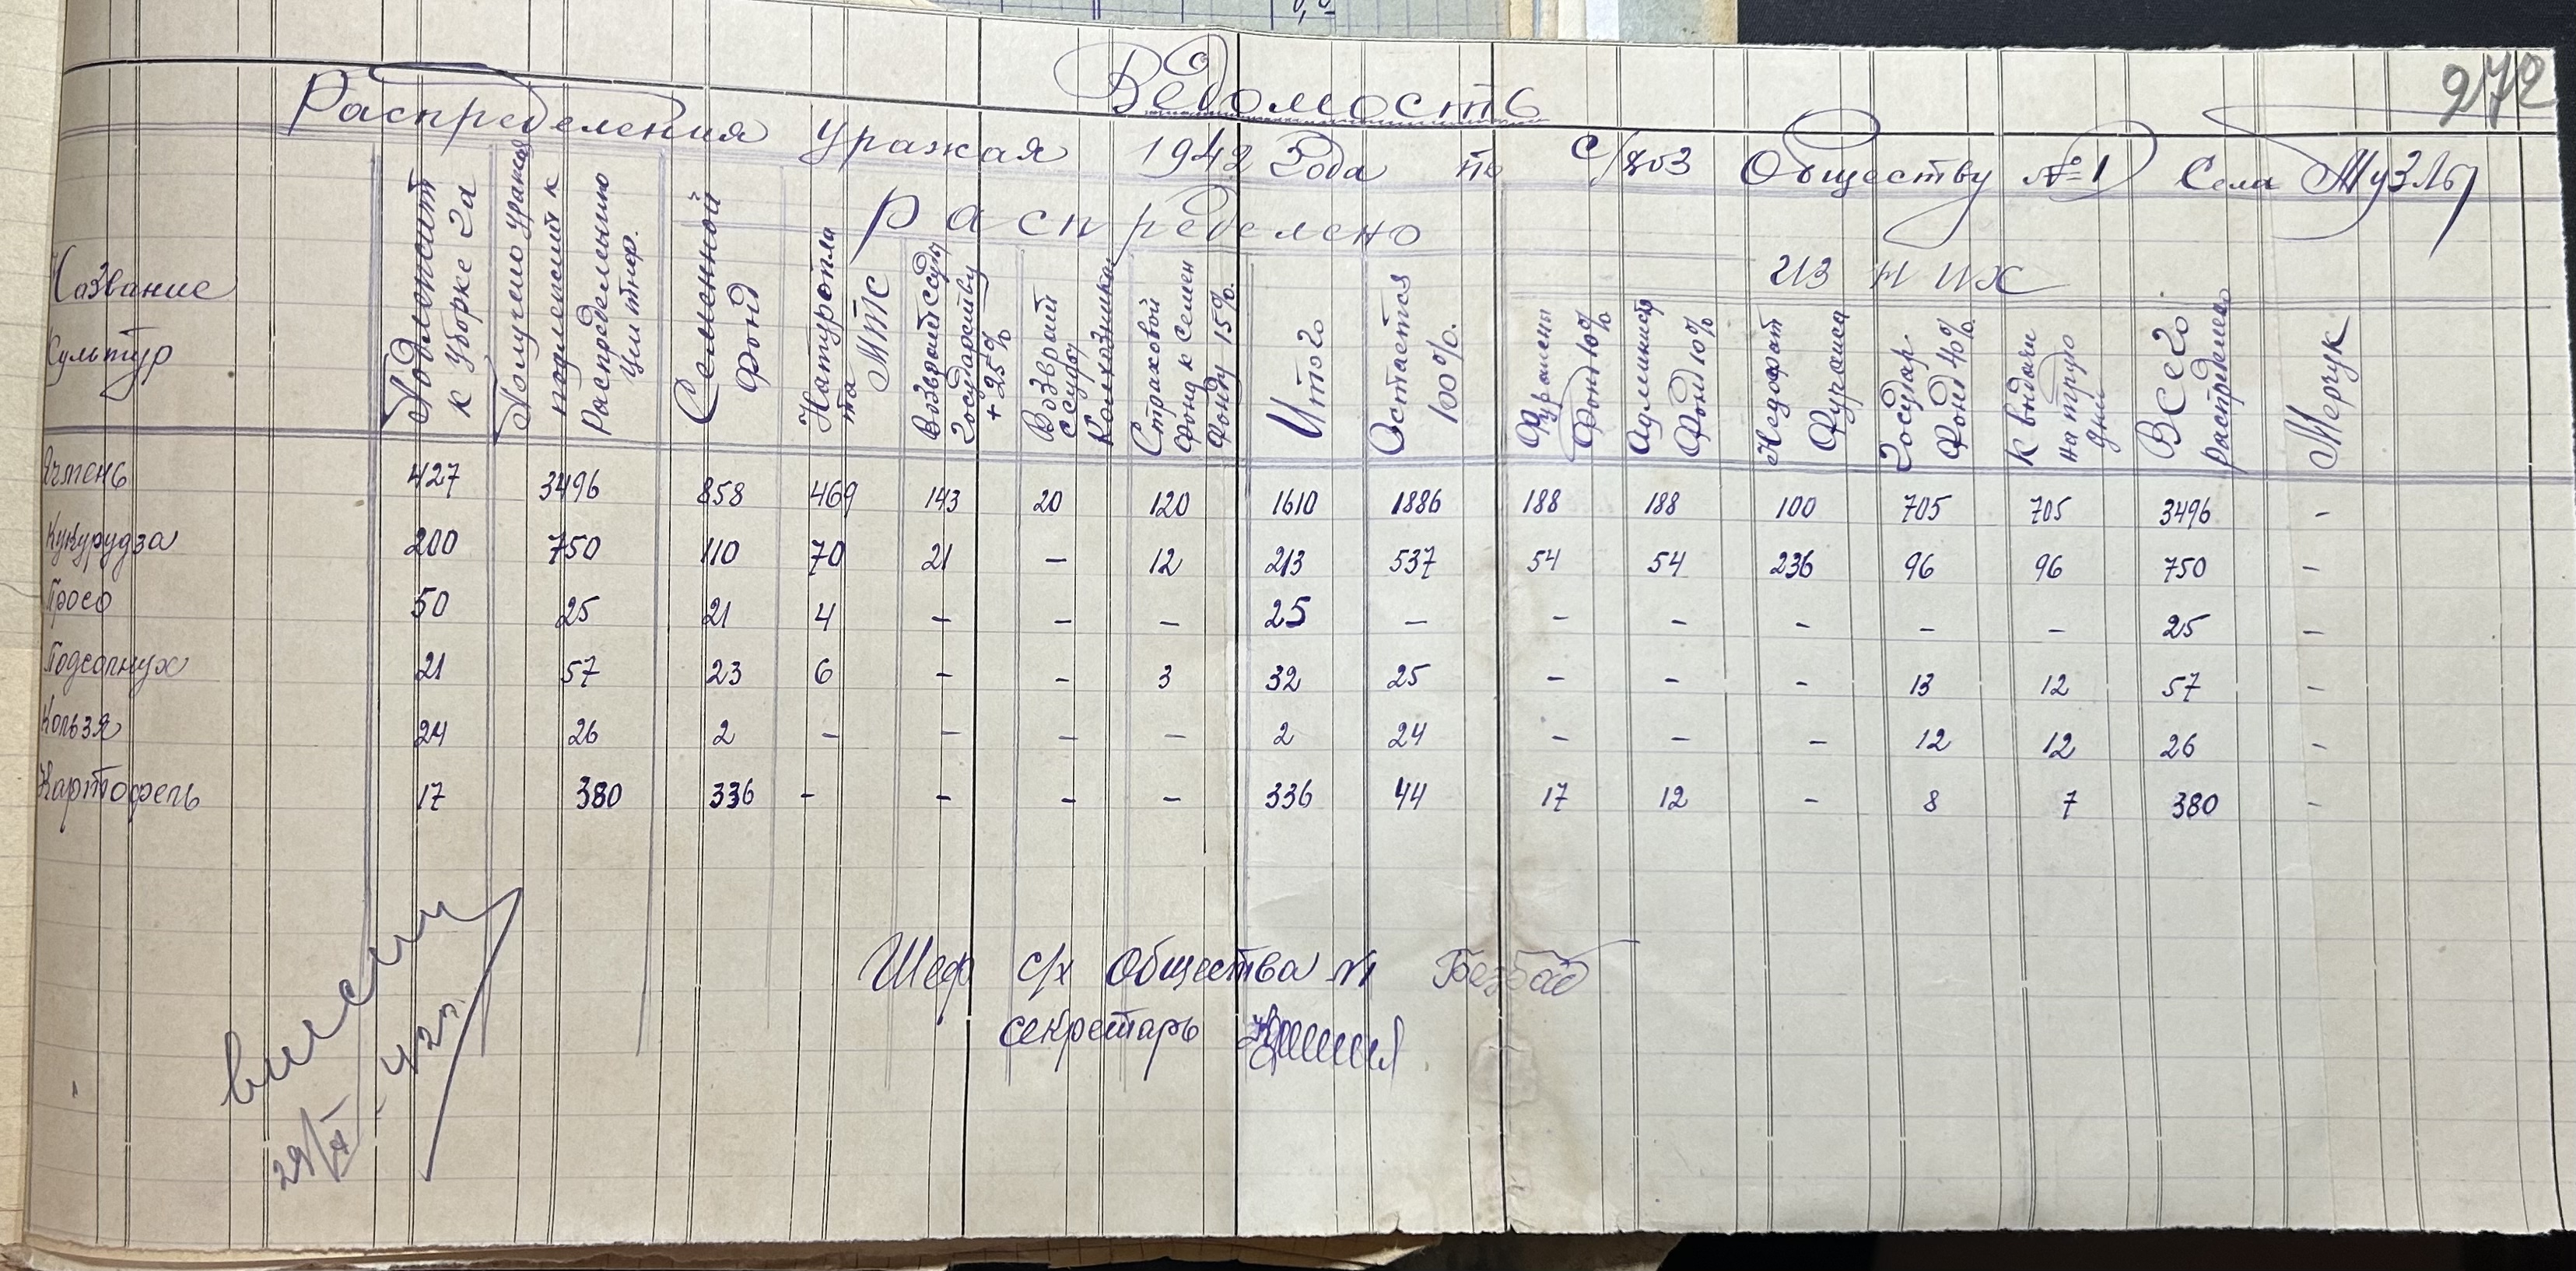 272
Ведомость
Распределения Уражая 1942 Года по с/хоз Обществу №1 Села Музлы
Распределено
из них
Название Культур
Подлежит к Уборке га
Получено уражая подлежит к Распределению Цнт
Семенной Фонд
Натуропла та МТС
Возврат Ссуды Государству + 25%
Возврат ссуды Колхозникам
Страховой фонд к семен фонду 15%.
Итого
Остается 100%.
Фуражн Фонд 10%
Админист Фонд 10%
Недофот Фуража
Государ Фонд 40%
К выдачи на трудо дни
Всего распределено
Мерчук
Ячмень 427 3496 858 469 143 20 120 1610 1886 188 188 100 705 705 3496 -
Кукурудза 200 750 110 70 21 - 12 213 537 54 54 236 96 96 750 -
Просо 50 25 21 4 - - - 25 - - - - - - 25 -
Подсолнух 21 57 23 6 - - 3 32 25 - - - 13 12 57 -
Кользя 24 26 2 - - - - 2 24 - - - 12 12 26 -
Картофель 17 380 336 - - - - 336 44 17 12 - 8 7 380 -
Шеф с/х Общества №1
секретарь
29/X - 42г.